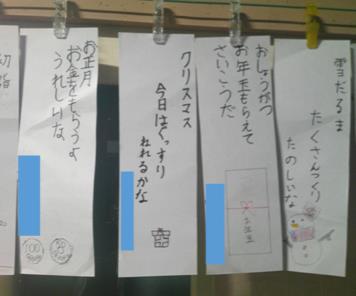 雪だるま
たくさんつくり
たのしいな
おしょうがつ
お年玉もらえて
さいこうだ
お年玉
クリスマス
今日はぐっすり
ねれるかな
お正月
お金をもらうよ
うれしいな
100
50
初詣